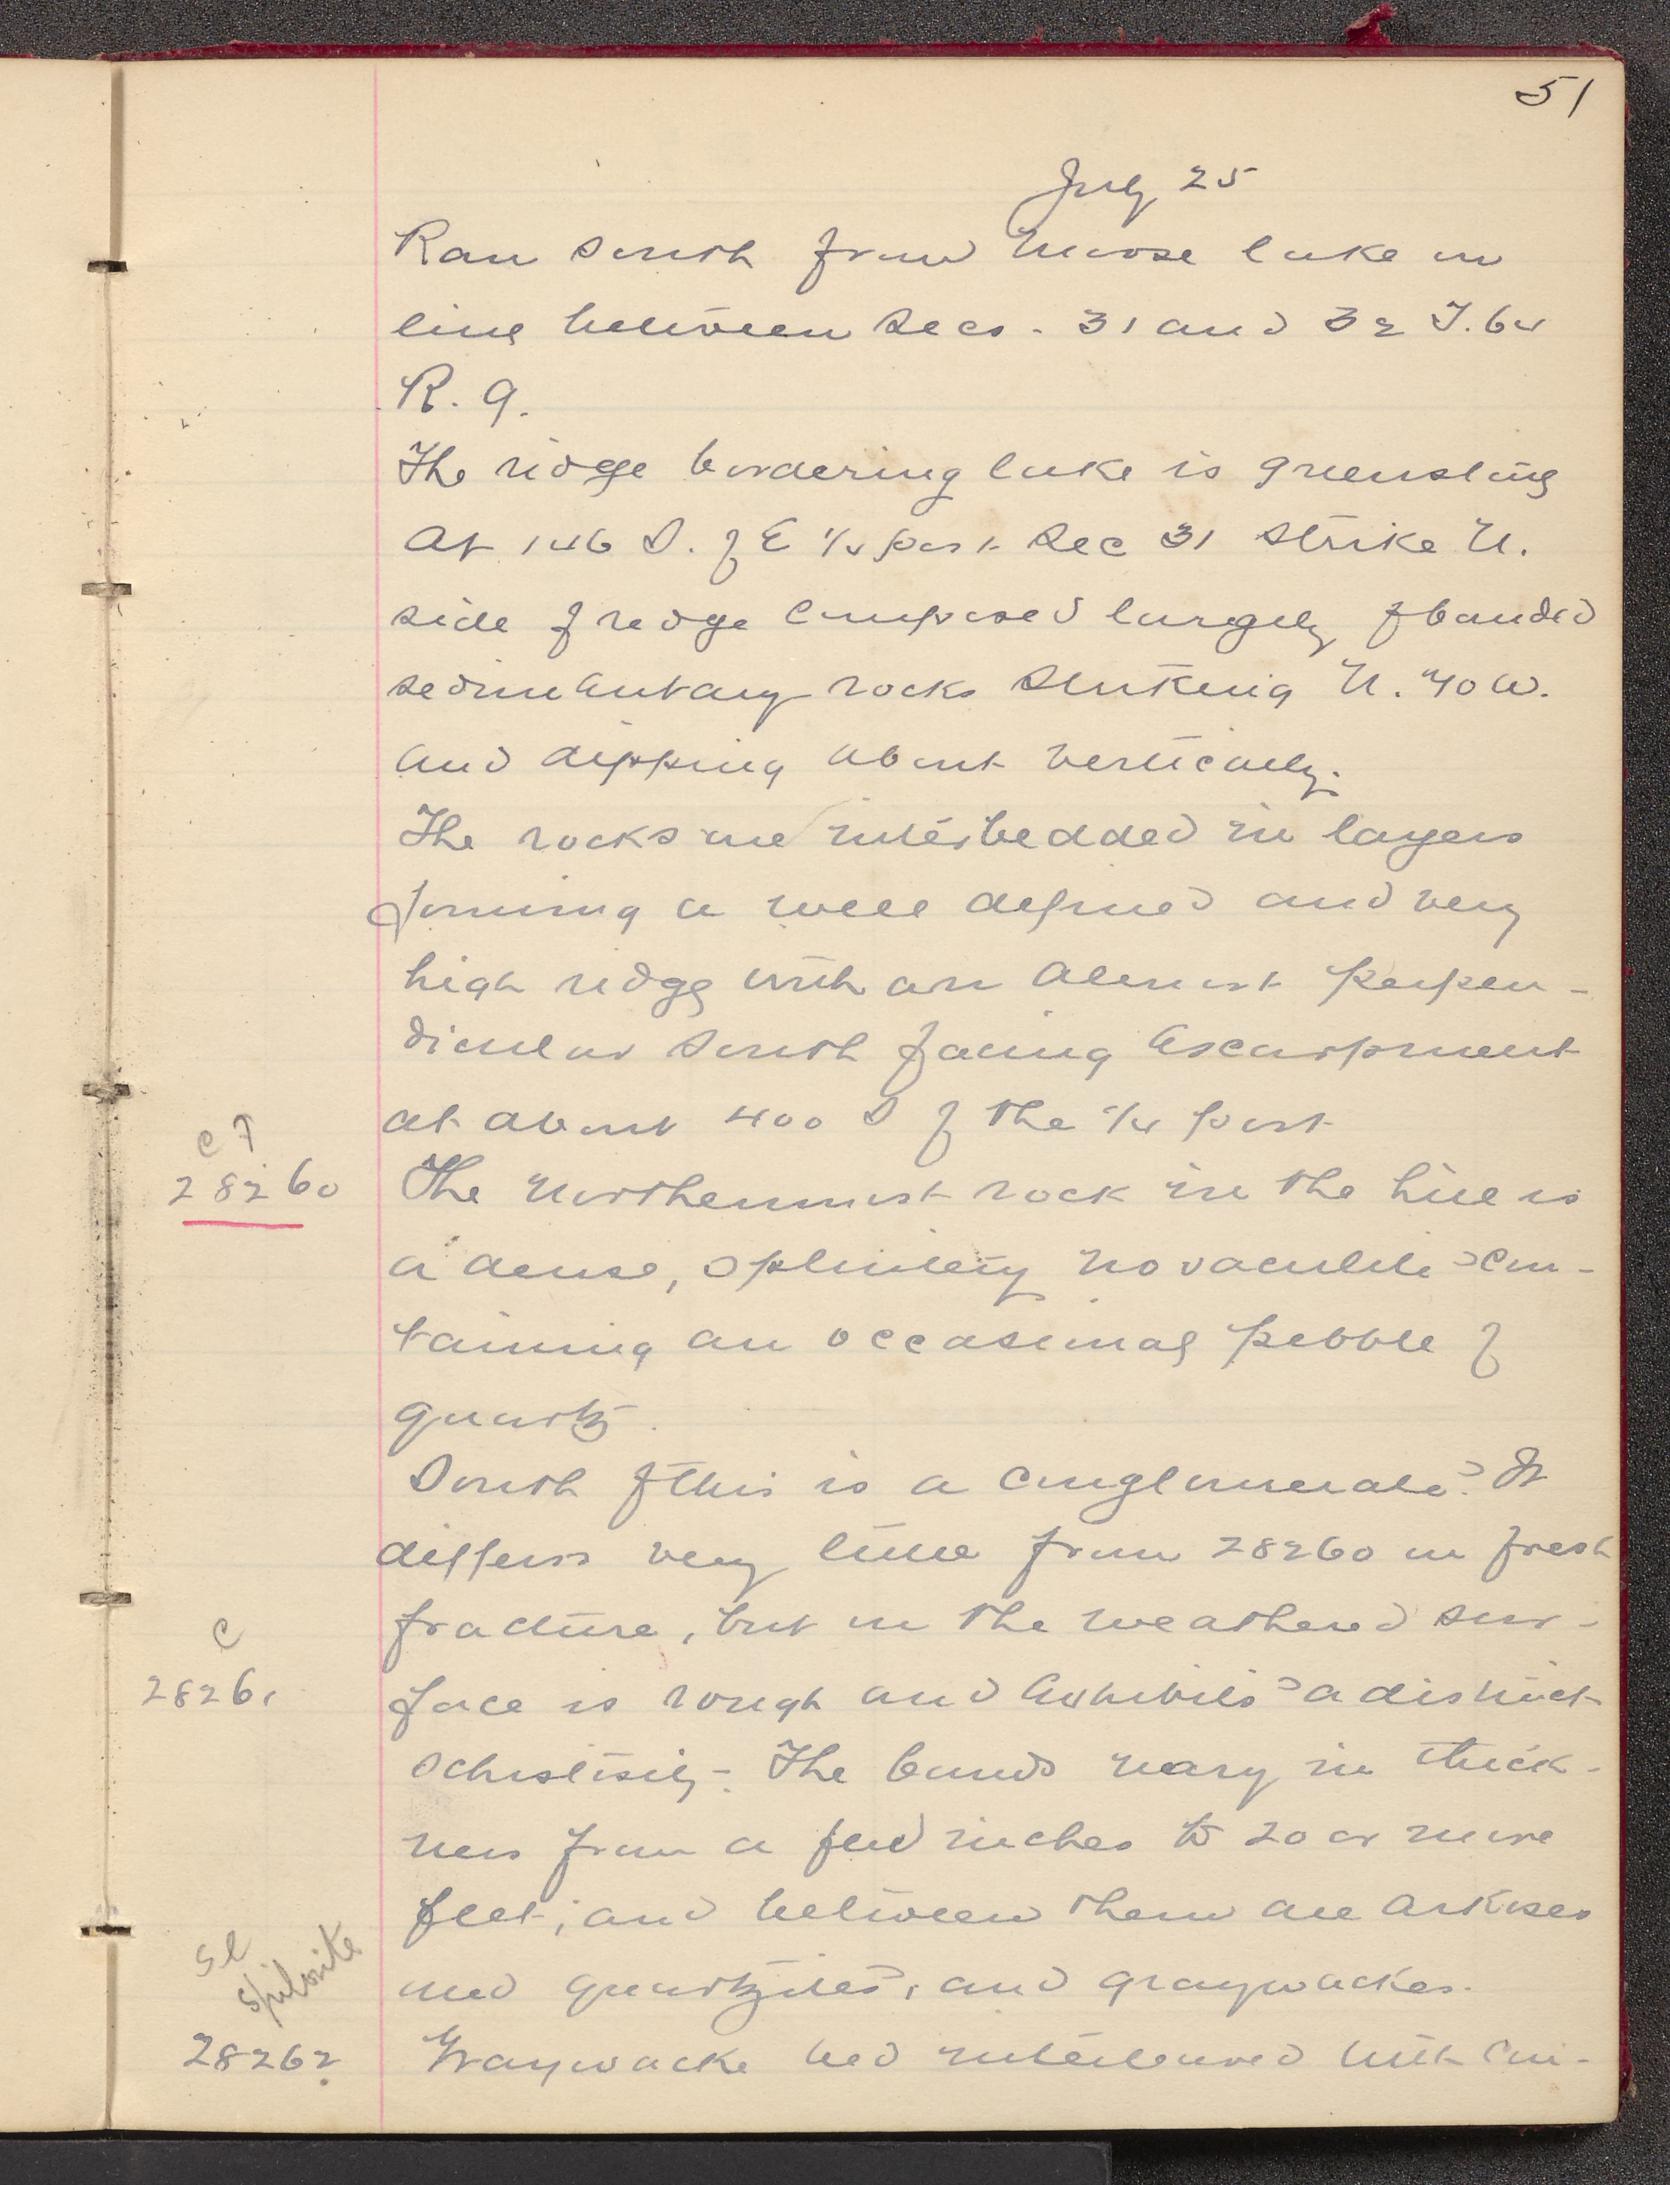 51
July 25
Ran south from Moose lake on
line between Secs. 31 and 32 T. 64
R. 9.
The ridge bordering lake is greenstone
At 146 S. of E 1/4 post Sec 31 strike N.
side of ridge composed largely of banded
sedimentary rocks striking N. 70 W.
and dipping about vertically.
The rocks are interbedded in layers
forming a well defined and very
high ridge with an almost perpen-
dicular south facing escarpment
at about 400 S of the 1/4 post
C 7
28260 The northernmost rock in the line is
a dense, splintery novaculite con-
taining an occasional pebble of
quartz.
South of this is a conglomerate. It
differs very little from 28260 on fresh
fracture, but on the weathered sur-
C
28261 face is rough and exhibits a distinct
schistosity. The bands vary in thick-
ness from a few inches to 20 or more
feet, and between them are arkoses
Sl
spilosite
and quartzites, and graywackes.
28262 Graywacke bed interleaved with con-